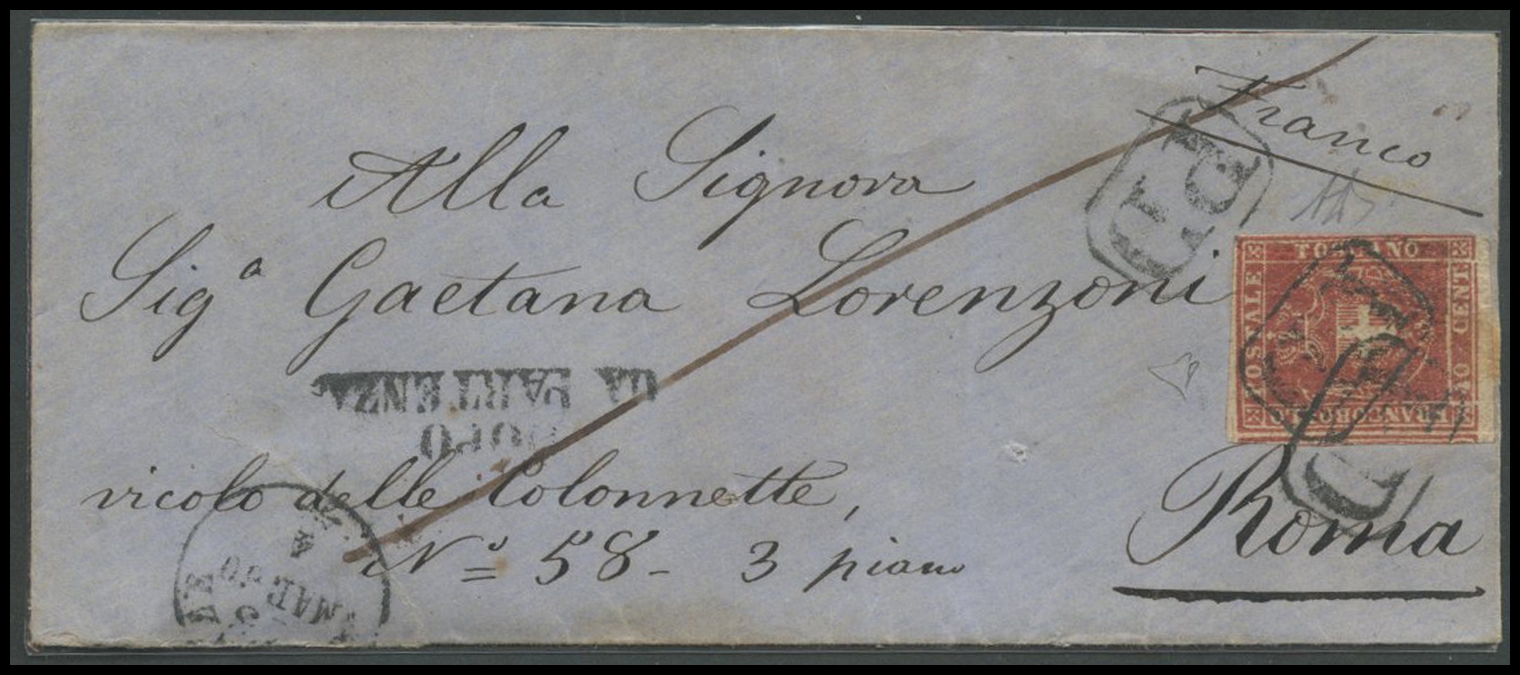 Franco
Alla Signora
Sigª Gaetana Lorenzoni
vicolo delle Colonnette,
Nº 58 - 3 piano
Roma
DOPO
LA PARTENZA
PD
FRANCOBOLLO
POSTALE
TOSCANO
40 CENT
MAR 60